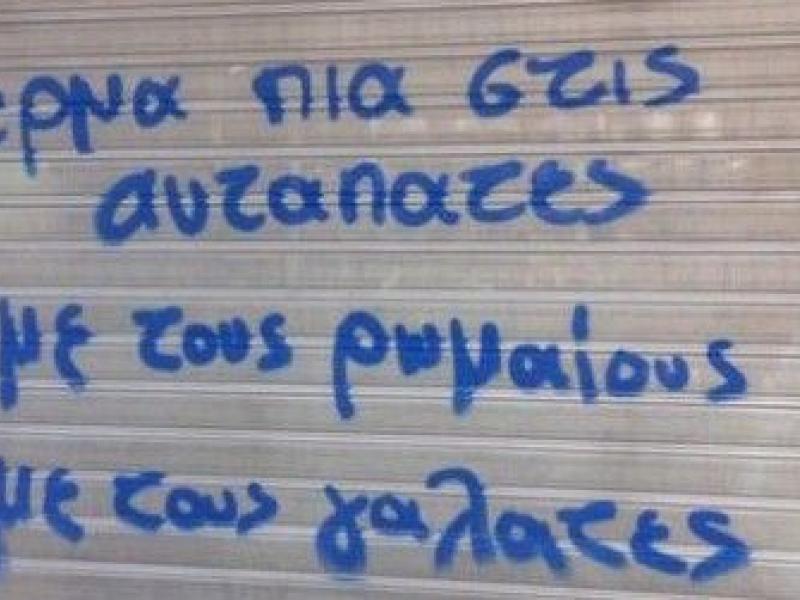 ερμα πια στις
αυταπατες
με τους ρωμαίους
με τους γαλατες